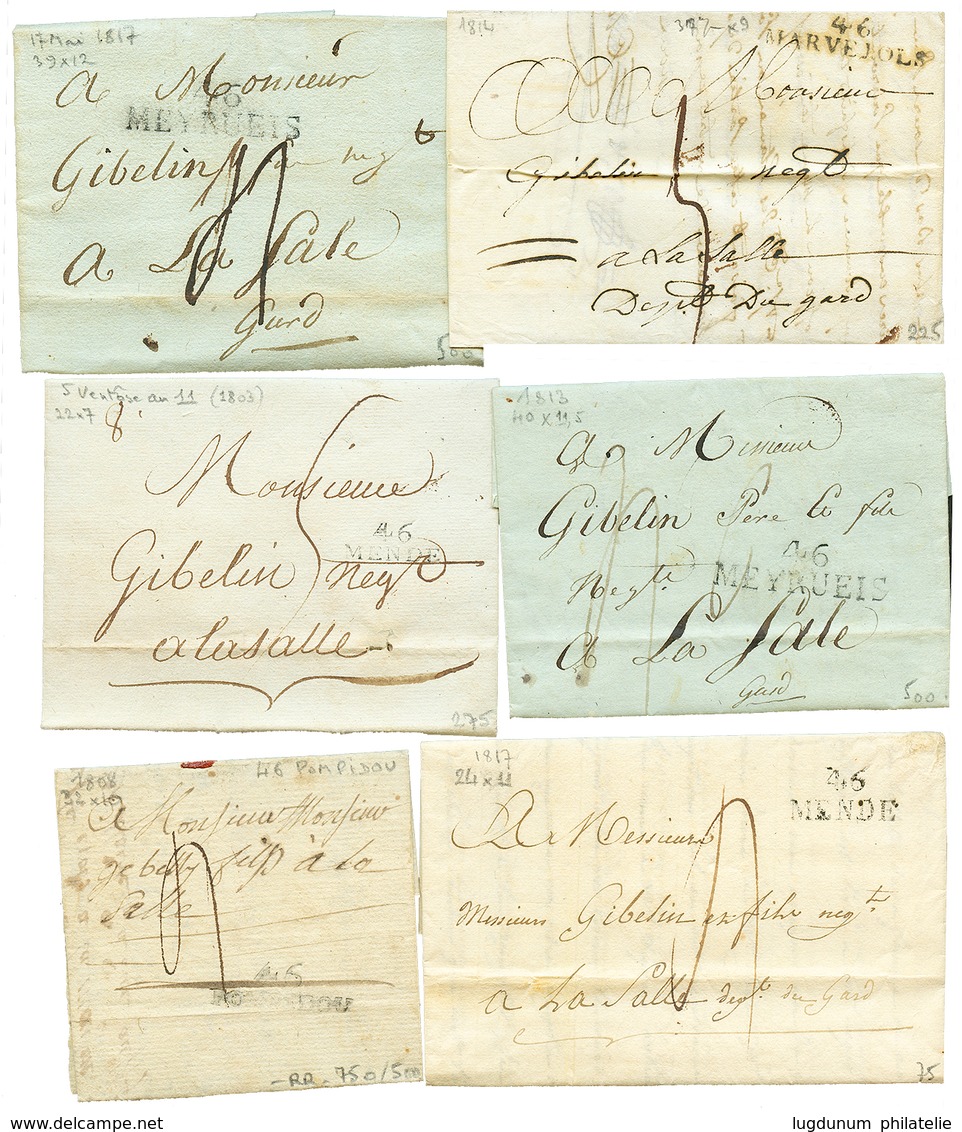 17 Mai 1817
39x12
A Monsieur
46
MEYRUEIS
Gibelin negt
A La Sale
Gard
500
1814
46
MARVEJOLS
Monsieur
Gibelin negt
a La Salle
Dept Du gard
225
5 Ventôse an 11 (1803)
22x7
8
Monsieur
46
MENDE
Gibelin Negt
a lasalle
275
1813
40x11,5
A Messieurs
Gibelin Père & fils
46
MEYRUEIS
Negts
A La Sale
Gard
500
1808
46 POMPIDOU
A Monsieur Monsieur
fils à la
Salle
46
POMPIDOU
-RR- 750/500
1817
24x11
46
MENDE
A Messieurs
Messieurs Gibelin et fils negts
a La Salle dept du Gard
75
www.delcampe.net
lugdunum philatelie